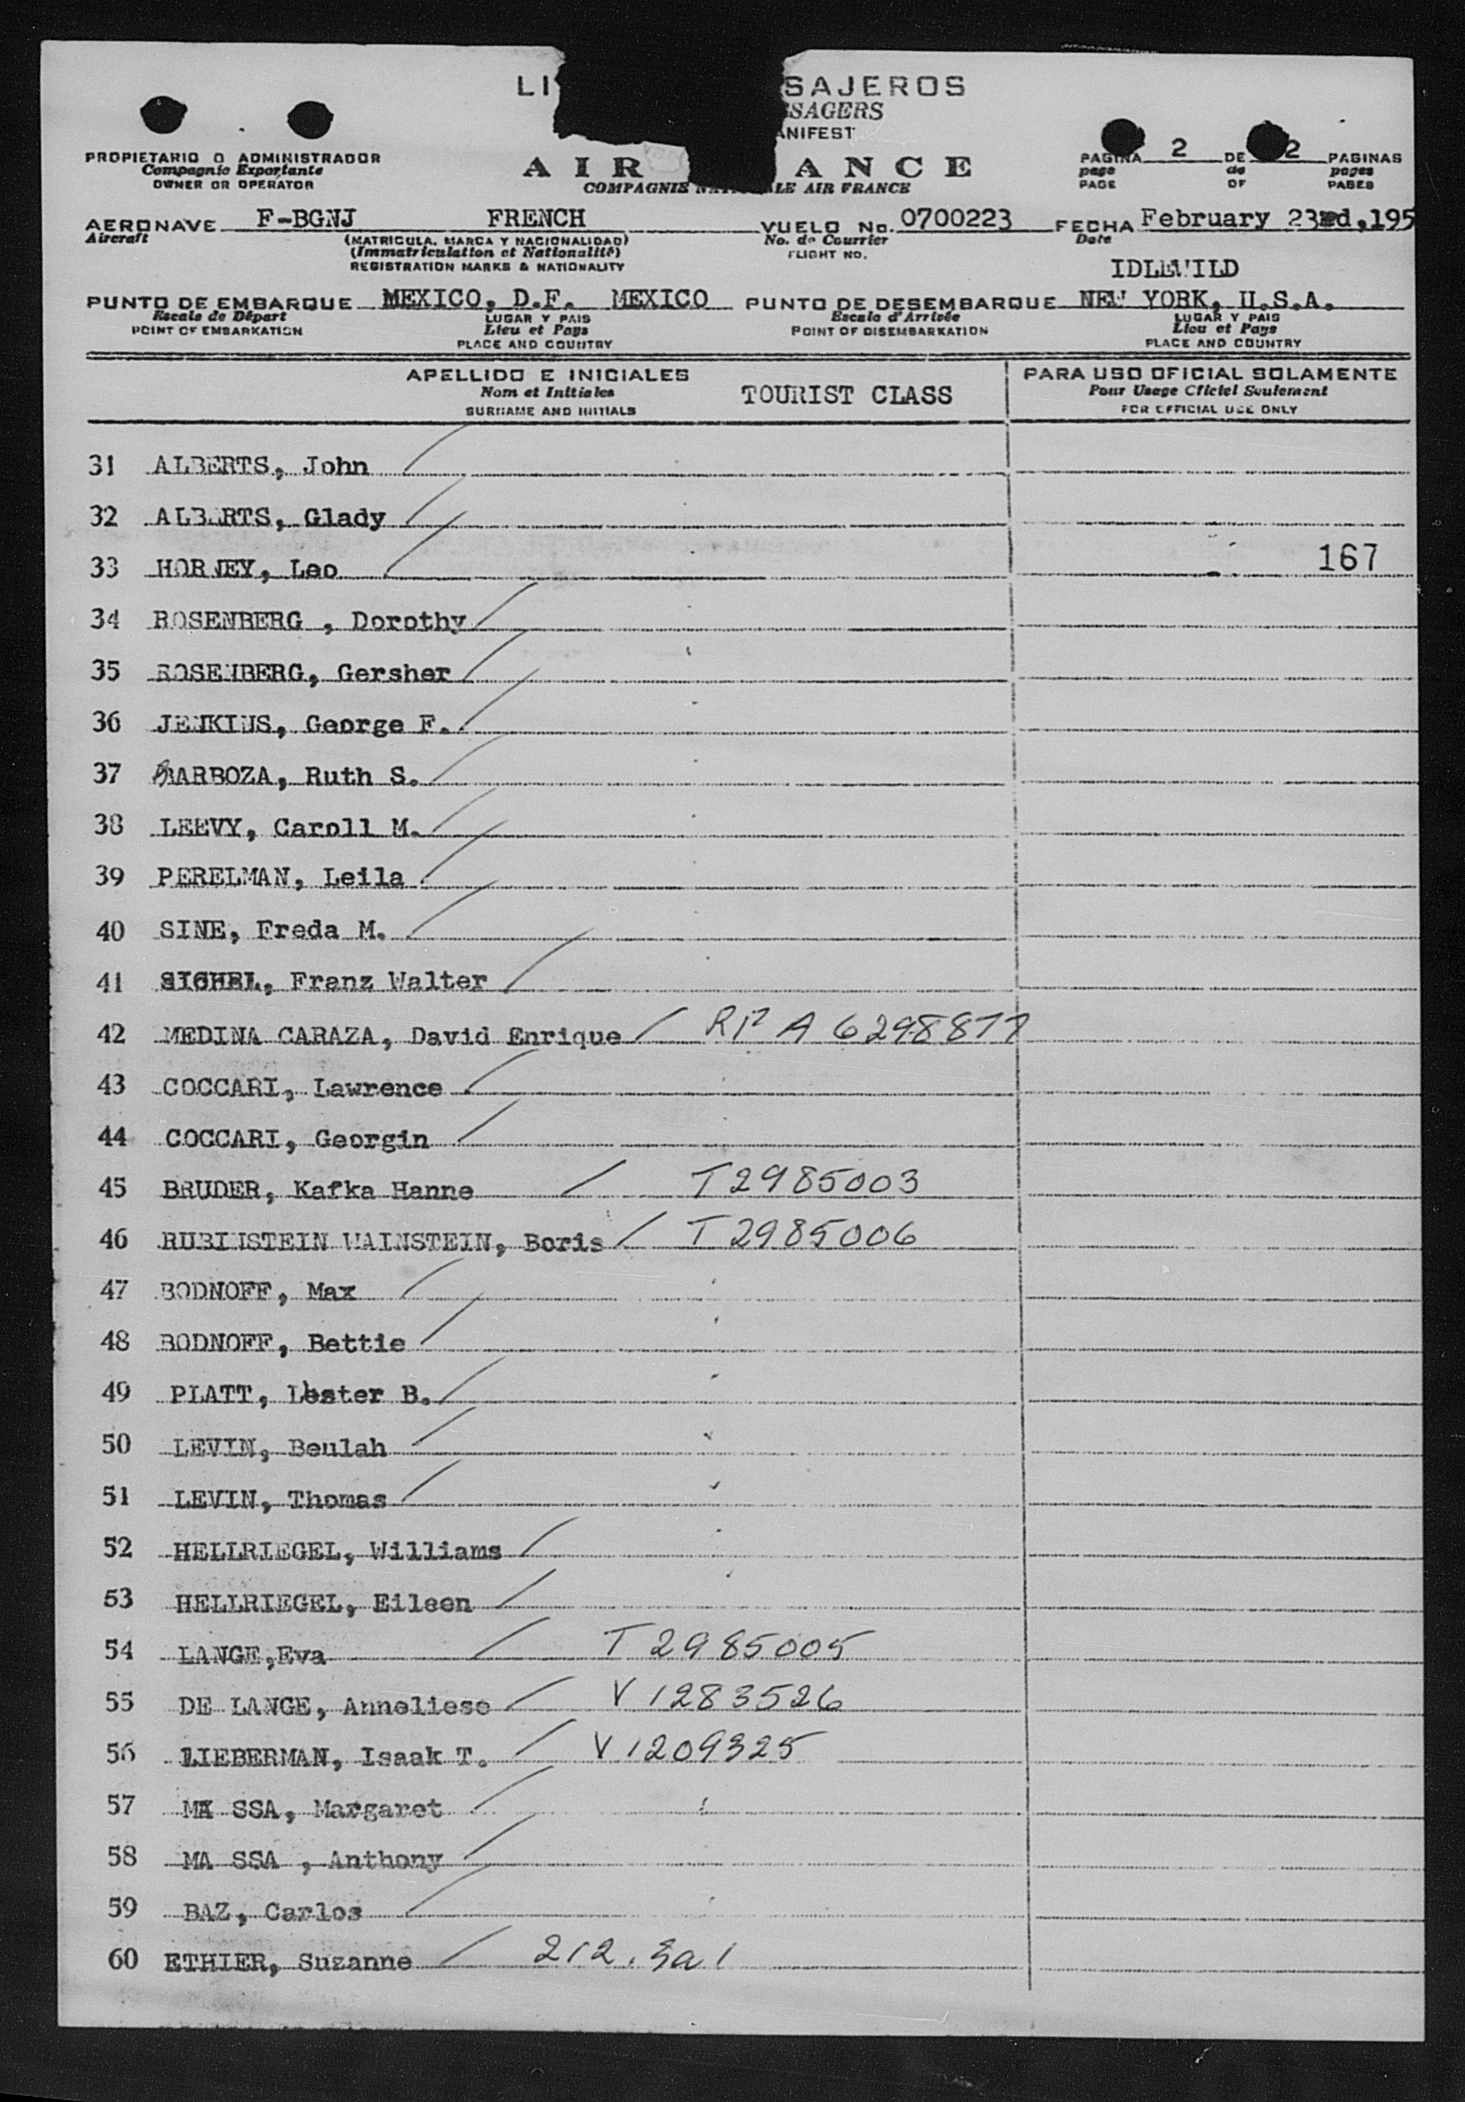 LI SAJEROS
SAGERS
ANIFEST
PROPIETARIO O ADMINISTRADOR
Compagnie Exportante
OWNER OR OPERATOR
AIR ANCE
COMPAGNIE NA LE AIR FRANCE
PAGINA 2 DE 2 PAGINAS
page de pages
PAGE OF PAGES
AERONAVE F-BGNJ FRENCH VUELO No. 0700223 FECHA February 23rd, 195
Aircraft (MATRICULA, MARCA Y NACIONALIDAD) No. de Courrier Date
(Immatriculation et Nationalité) FLIGHT NO.
REGISTRATION MARKS & NATIONALITY
IDLEWILD
PUNTO DE EMBARQUE MEXICO, D.F. MEXICO PUNTO DE DESEMBARQUE NEW YORK, U.S.A.
Escale de Départ LUGAR Y PAIS Escale d'Arrivée LUGAR Y PAIS
POINT OF EMBARKATION Lieu et Pays POINT OF DISEMBARKATION Lieu et Pays
PLACE AND COUNTRY PLACE AND COUNTRY
APELLIDO E INICIALES TOURIST CLASS PARA USO OFICIAL SOLAMENTE
Nom et Initiales Pour Usage Officiel Seulement
SURNAME AND INITIALS FOR OFFICIAL USE ONLY
31 ALBERTS, John
32 ALBERTS, Glady
33 HORJEY, Leo 167
34 ROSENBERG , Dorothy
35 ROSENBERG, Gersher
36 JENKINS, George F.
37 BARBOZA, Ruth S.
38 LEEVY, Caroll M.
39 PERELMAN, Leila
40 SINE, Freda M.
41 SICHEL, Franz Walter
42 MEDINA CARAZA, David Enrique RP A 6298877
43 COCCARI, Lawrence
44 COCCARI, Georgin
45 BRUDER, Kafka Hanne T2985003
46 RUBINSTEIN WAINSTEIN, Boris T2985006
47 BODNOFF, Max
48 BODNOFF, Bettie
49 PLATT, Lester B.
50 LEVIN, Beulah
51 LEVIN, Thomas
52 HELLRIEGEL, Williams
53 HELLRIEGEL, Eileen
54 LANGE,Eva T2985005
55 DE LANGE, Anneliese V1283526
56 LIEBERMAN, Isaak T. V1209325
57 MA SSA, Margaret
58 MA SSA , Anthony
59 BAZ, Carlos
60 ETHIER, Suzanne 212.3a1